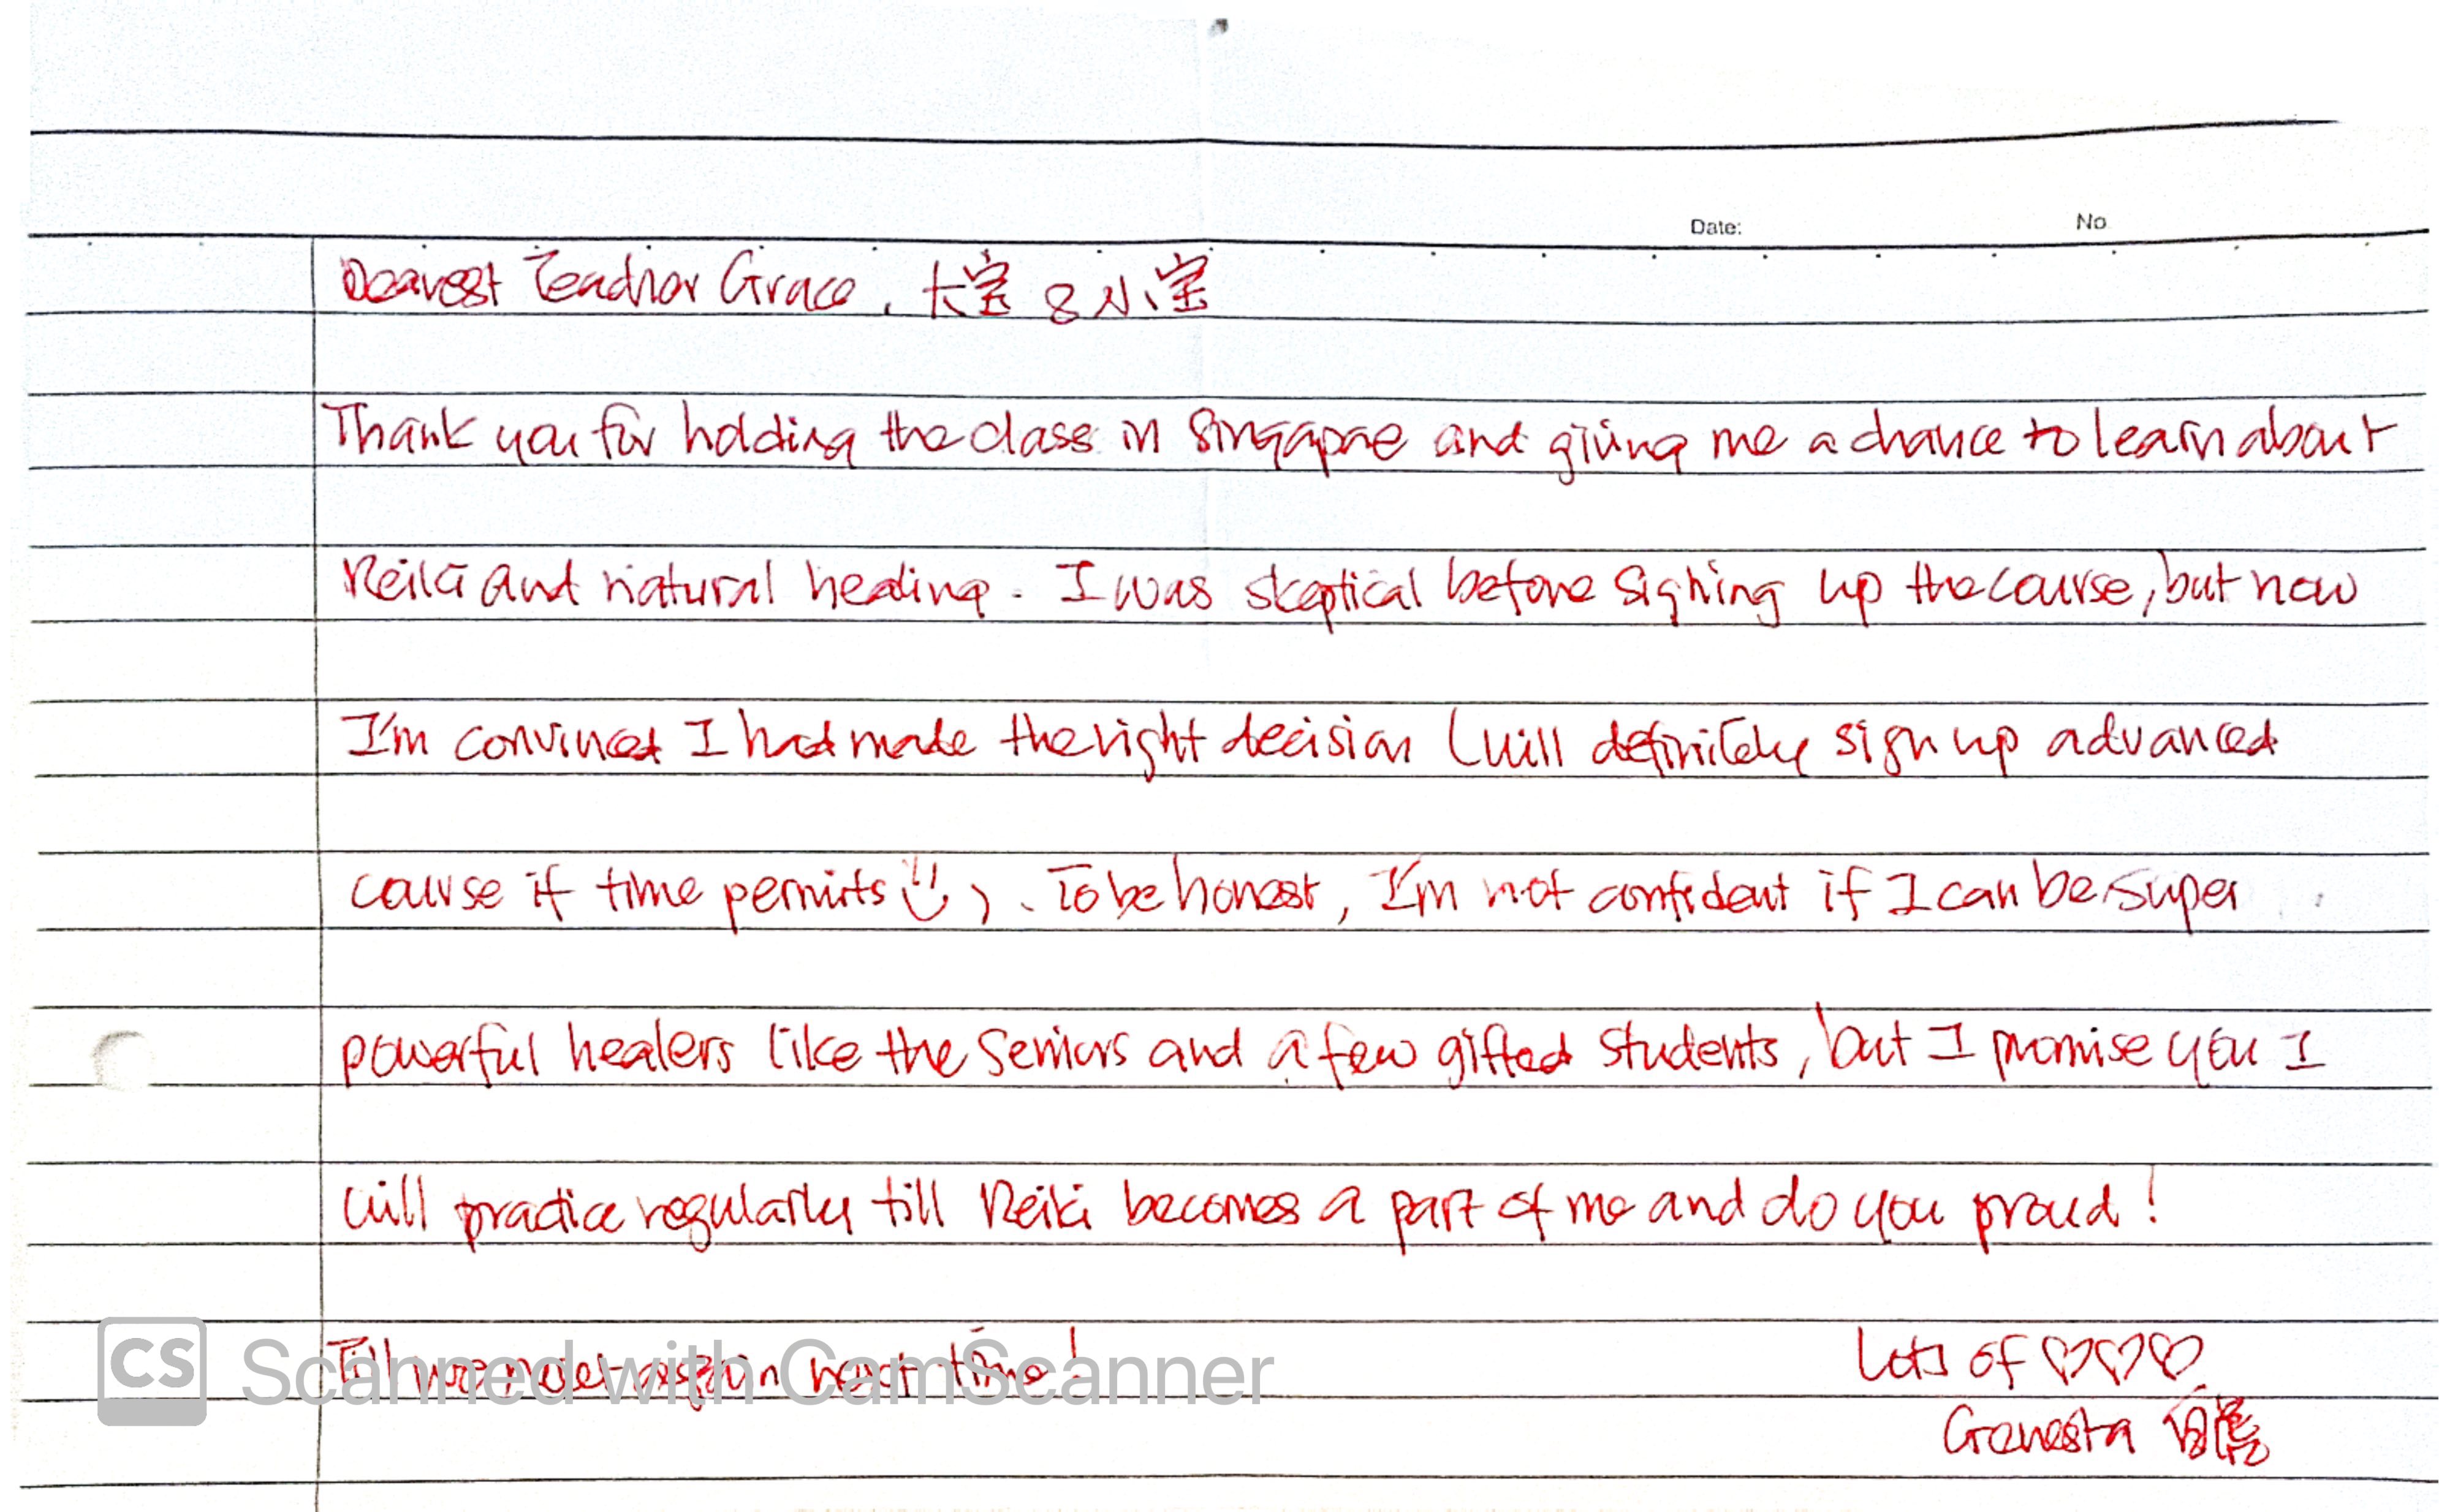 Date: No
Dearest Teacher Grace, 大宝 & 小宝
Thank you for holding the class in Singapore and giving me a chance to learn about
Reiki and natural healing. I was skeptical before signing up the course, but now
I'm convinced I had made the right decision (will definitely sign up advanced
course if time permits ü). To be honest, I'm not confident if I can be super
powerful healers like the seniors and a few gifted students, but I promise you I
will practice regularly till Reiki becomes a part of me and do you proud!
Till we meet again next time! Lots of ♡♡♡
CS Scanned with CamScanner
Genesta